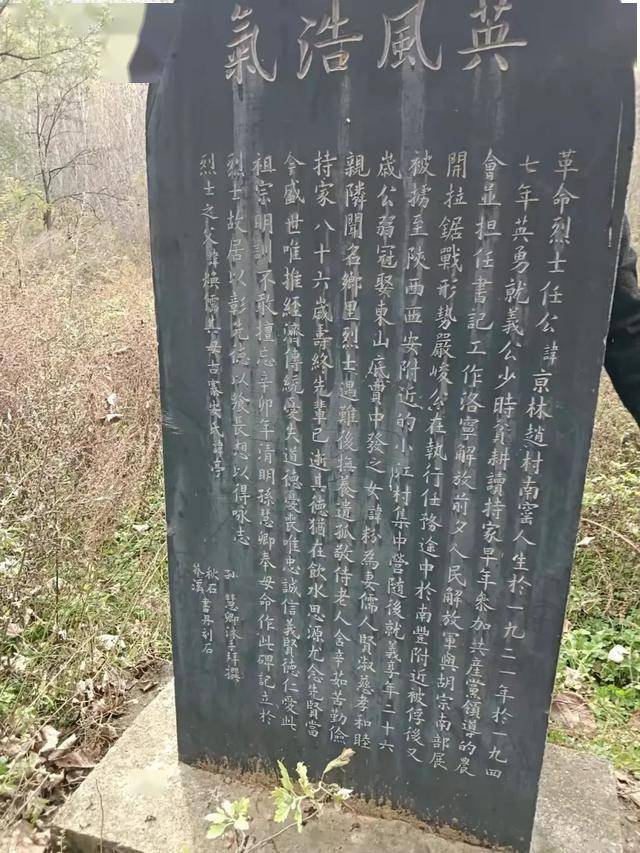 英風浩氣
革命烈士任公諱京林趙村南窑人生於一九二一年於一九四
七年英勇就義公少時貧耕讀持家早年參加共産黨領導的農
會並担任書記工作洛寧解放前夕人民解放軍與胡宗南部展
開拉鋸戰形勢嚴峻公在執行任務途中於南豐附近被俘後又
被擄至陝西西安附近的小江村集中營隨後就義享年二十六
歲公弱冠娶東山底賈中發之女諱粉為妻儒人賢淑慈孝和睦
親隣聞名鄉里烈士遇難後撫養遺孤敬侍老人含辛茹苦勤儉
持家八十六歲壽終先輩已逝其德猶在飲水思源尤念先賢當
今盛世唯推經濟傳統憂失道德憂喪唯忠誠信義賢德仁愛此
祖宗明訓不敢擅忘辛卯年清明孫慧卿奉母命作此碑記立於
烈士故居以彰先德以飨長想以得咏志
烈士之父諱煥儒其母古寨安氏諱亭
孫慧卿濤子拜撰
秋石
養溪書丹刻石